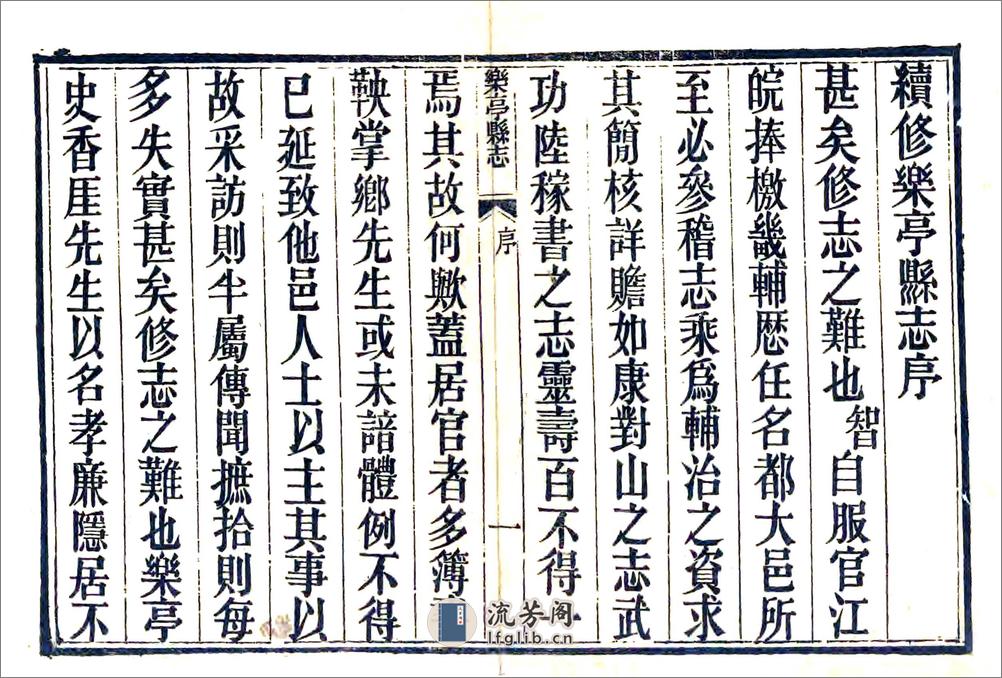 續修樂亭縣志序
甚矣修志之難也智自服官江
皖捧檄畿輔歷任名都大邑所
至必參稽志乘爲輔治之資求
其簡核詳贍如康對山之志武
功陸稼書之志靈壽百不得一
樂亭縣志 序 一
焉其故何歟蓋居官者多簿
鞅掌鄉先生或未諳體例不得
已延致他邑人士以主其事以
故采訪則半屬傳聞摭拾則每
多失實甚矣修志之難也樂亭
史香厓先生以名孝廉隱居不
流芳阁
lfglib.cn